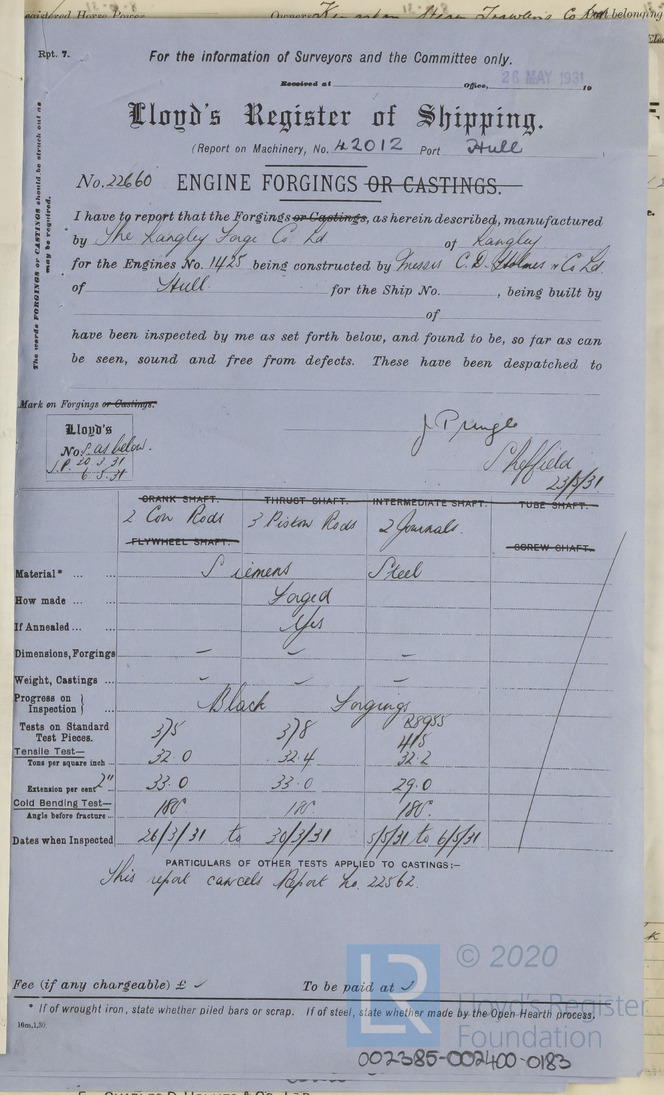 Registered Horse Power Owners Steam Trawling Co belonging
Rpt. 7.
For the information of Surveyors and the Committee only.
Received at Office, 26 MAY 1931 19
Lloyd's Register of Shipping.
(Report on Machinery, No. 42012 Port Hull
No. 22660 ENGINE FORGINGS OR CASTINGS.
The words FORGINGS or CASTINGS should be struck out as
may be required.
I have to report that the Forgings or Castings, as herein described, manufactured
by The Langley Forge Co Ld of Langley
for the Engines No. 1425 being constructed by Messrs C. D. Holmes & Co Ld.
of Hull for the Ship No. , being built by
of
have been inspected by me as set forth below, and found to be, so far as can
be seen, sound and free from defects. These have been despatched to
Mark on Forgings or Castings.
Lloyd's
No. as below.
J.P. 20.3.31
6.5.31
J Pringle
Sheffield
23/5/31
CRANK SHAFT. THRUST SHAFT. INTERMEDIATE SHAFT. TUBE SHAFT.
2 Con Rods 3 Piston Rods 2 Journals.
FLYWHEEL SHAFT. SCREW SHAFT.
Material* ... ... Siemens Steel
How made ... ... Forged
If Annealed ... ... Yes
Dimensions, Forgings – – –
Weight, Castings ... – – –
Progress on Inspection } ... Black Forgings
Tests on Standard Test Pieces. 375 378 415
Tensile Test—
Tons per square inch ... 32.0 32.4 32.2
Extension per cent 2" 33.0 33.0 29.0
Cold Bending Test—
Angle before fracture ... 180° 180° 180°.
Dates when Inspected 26/3/31 to 30/3/31 5/5/31 to 6/5/31
PARTICULARS OF OTHER TESTS APPLIED TO CASTINGS:—
This report cancels Report No. 22562.
Fee (if any chargeable) £ ✓ To be paid at ✓
* If of wrought iron, state whether piled bars or scrap. If of steel, state whether made by the Open Hearth process.
10m,1,30.
LR © 2020
Lloyd's Register
Foundation
002385-002400-0183
CHARLES D. HOLMES & CO., LTD.